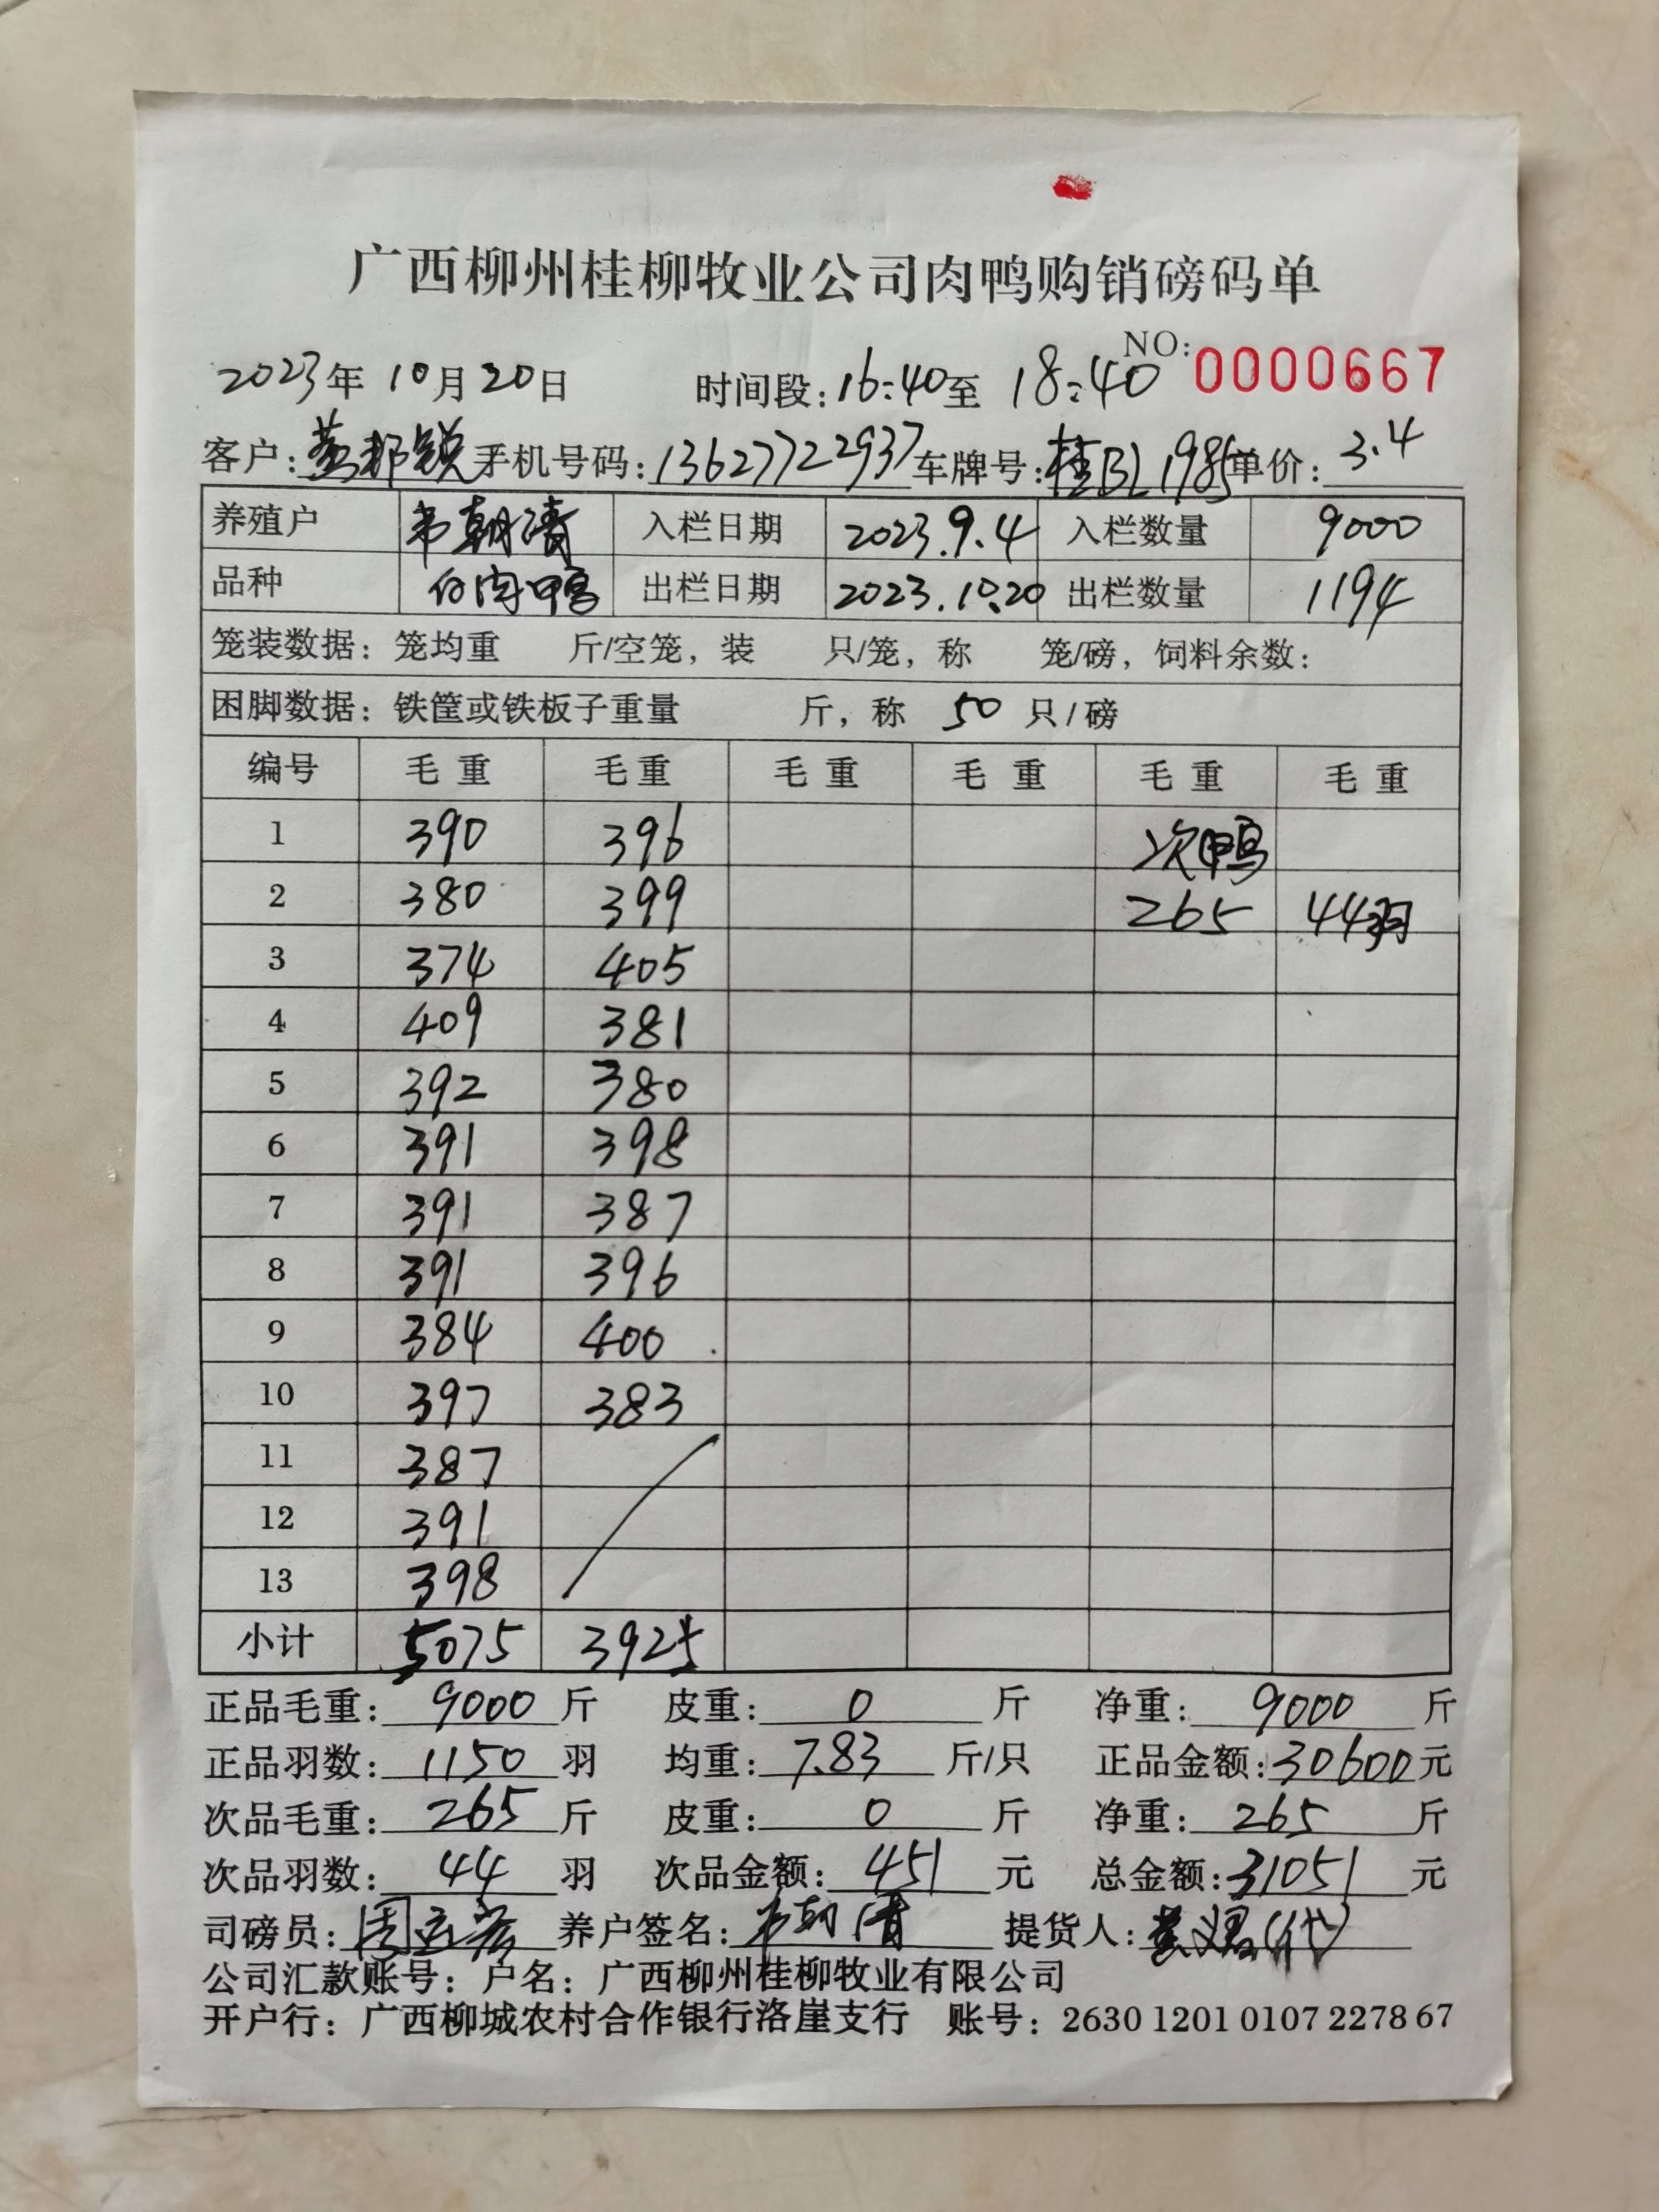 广西柳州桂柳牧业公司肉鸭购销磅码单
NO: 0000667
2023年 10月 20日 时间段: 16:40至 18:40
客户: 手机号码: 13627722937 车牌号: 桂BL1985 单价: 3.4
养殖户 韦朝清 入栏日期 2023.9.4 入栏数量 9000
品种 白肉鸭 出栏日期 2023.10.20 出栏数量 1194
笼装数据: 笼均重 斤/空笼, 装 只/笼, 称 笼/磅, 饲料余数:
困脚数据: 铁筐或铁板子重量 斤, 称 50 只/磅
编号 毛重 毛重 毛重 毛重 毛重 毛重
1 390 396 次鸭
2 380 399 265 44羽
3 374 405
4 409 381
5 392 380
6 391 398
7 391 387
8 391 396
9 384 400
10 397 383
11 387
12 391
13 398
小计 5075 3925
正品毛重: 9000 斤 皮重: 0 斤 净重: 9000 斤
正品羽数: 1150 羽 均重: 7.83 斤/只 正品金额: 30600元
次品毛重: 265 斤 皮重: 0 斤 净重: 265 斤
次品羽数: 44 羽 次品金额: 451 元 总金额: 31051 元
司磅员: 养户签名: 韦朝清 提货人: (代)
公司汇款账号: 户名: 广西柳州桂柳牧业有限公司
开户行: 广西柳城农村合作银行洛崖支行 账号: 2630 1201 0107 2278 67